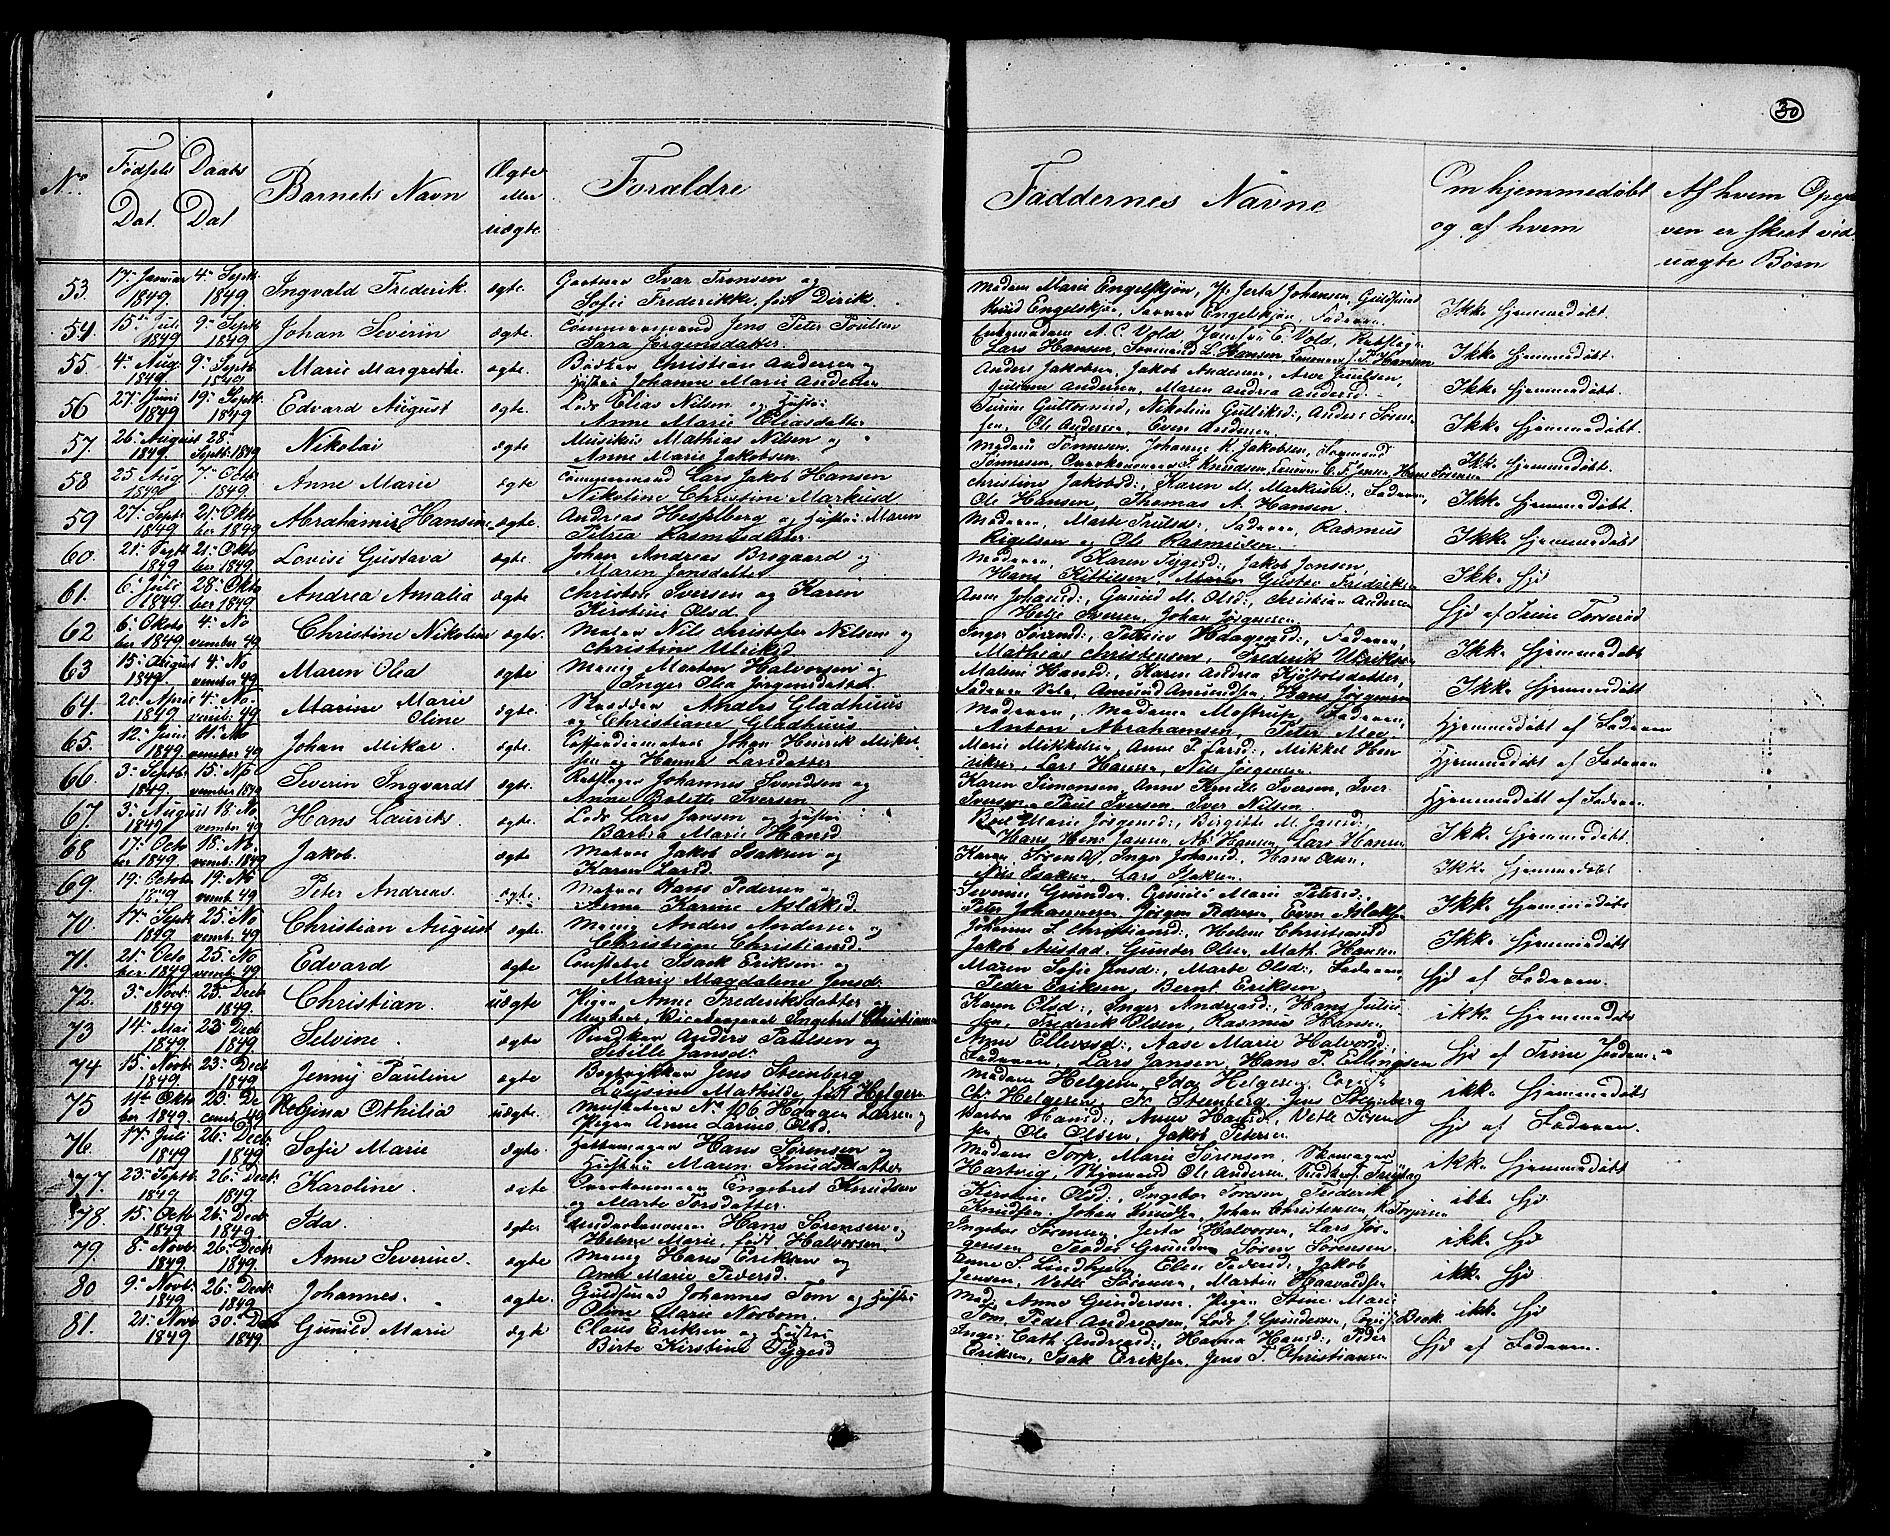 30
No
Fødsels Dat.
Daabs Dat
Barnets Navn
Ægte eller uægte.
Forældre
Faddernes Navne
Om hjemmedøbt og af hvem
Af hvem Opgaven er skeet ved uægte Børn
53. 17. Januar 1849. 4. Septb. 1849. Ingvald Frederik. ægte. Gartner Ivar Tronsen og
Sofie Frederikke, født Dirik.
Madam Marie Engelskjøn, Jfr Jerta Johansen, Guldsmed
Knud Engelskjøn, Engelskjøn, Faderen.
Ikke hjemmedøbt.
54. 15. Juli 1849 9. Septb 1849 Johan Severin ægte. Tømmermand Jens Peter Poulsen
Sara Jørgensdatter.
Enkemadam A. C. Vold, Jomfru E. Vold, Rebslager
Lars Hansen, Tømmermd L. Hansen, J. P. Hansen
Ikke hjemmedøbt.
55 4. Aug. 1849 9. Septb. 1849 Marie Margrethe. ægte. Bødker Christian Andersen og
Hustru Johanne Marie Andersen
Anders Jakobsen, Jakob Andersen, Arve Juulsen,
Andersen, Maren Andrea Andersd.
Ikke hjemmedøbt.
56 27. Juni 1849 19. Septb. 1849 Edvard August ægte. Lods Elias Nilsen og Hustru
Anne Marie Eliasdatter
Guttormsd, Nikoline Gulliksd:, Anders Sørensen,
Ole Andersen, Even Andersen.
Ikke hjemmedøbt.
57. 26. August 1849. 28. Septb. 1849 Nikolai ægte Musikus Mathias Nilsen og
Anne Marie Jakobsen.
Madam Tønnesen, Johanne K. Jakobsen,
Tønnesen, Overkanoneer J. Knudsen, C. F. Jensen, Hans Sørensen
Ikke hjemmedøbt.
58 25 Aug. 1849 7. Octb. 1849. Anne Marie ægte Tømmermand Lars Jakob Hansen
Nikoline Christine Markusd
Christine Jakobsd:, Karen M. Markusd:, Faderen,
Ole Hansen, Thomas A. Hansen.
Ikke hjemmedøbt.
59 27. Septb 1849 21. Oktober 1849 Abrahamine Hansine ægte. Andreas Hesselberg og Hustru Maren
Petria Rasmusdatter
Moderen, Marte Truulsd:, Faderen, Rasmus
Rigelsen og Ole Rasmussen.
Ikke hjemmedøbt
60. 21. Septb 1849 21. Oktober 1849. Lovise Gustava ægte. Johan Andreas Bregaard og
Maren Jensdatter
Moderen, Karen Tygesd:, Jakob Jensen,
Hans Kittilsen, Maren Gustav Fredriksen
Ikke Hjd
61. 6. Juli 1849. 28. Oktober 1849. Andrea Amalia ægte Christen Iversen og Karen
Kirstine Olsd.
Anne Johansd:, Gunild M. Olsd:, Christian Andersen
Helje Iversen, Johan Jørgensen.
Hjd af Trine Torverød
62 6. Oktober 1849. 4. November 49. Christine Nikoline ægte. Matros Nils Christofer Nilsen og
Christine Ulriksd
Inger Sørensd:, Petrine Haagensd:, Faderen,
Mathias Christensen, Frederik Ulriksen
Ikke hjemmedøbt
63 15. August 1849 4. November 49 Maren Olea ægte Menig Morten Halvorsen og
Inger Olea Jørgensdatter
Maline Hansd:, Karen Andrea Kjøstolsdatter,
Faderen, Amund Amundsen, Hans Jørgensen
Ikke hjemmedøbt
64. 20. April 1849 4. Novemb. 49 Marine Marie Oline ægte. Skredder Anders Gladhuus
og Christiane Gladhuus
Moderen, Madame Mostrup, Faderen,
Anton Abrahamsen, Peter Moe.
Hjemmedøbt af Faderen
65. 12. Juni 1849 11. November 49. Johan Mikal. ægte. Coffardimatros Johan Henrik Mikkelsen
og Hanna Larsdatter
Marie Mikkelsen, Anne P. Larsd:, Mikkel Henriksen,
Lars Hansen, Nils Jørgensen.
Hjemmedøbt af Faderen
66. 3. Septb. 1849. 15. November 1849 Severin Ingvardt ægte. Rebslager Johannes Svendsen og
Anne Bolette Iversen
Karen Simonsen, Anne Iversen, Iver
Iversen, Paul Iversen, Iver Nilsen.
Hjemmedøbt af Faderen
67 3. August 1849 18. November 49 Hans Laurits. ægte. Lods Lars Jansen og Hustru
Barbra Marie Hansd
Marie Jørgensd:, Birgitte M. Jansd:,
Hans Hans Jansen, M. Hansen, Lars Hansen
Ikke hjemmedøbt.
68 17. October 1849 18. Novemb. 1849 Jakob. ægte Matros Jakob Isaksen og
Karen Larsd.
Karen Sørensd, Inger Johansd:, Hans Olsen,
Nils Isaksen, Lars Isaksen.
Ikke hjemmedøbt
69. 19. October 1849 19. Novemb. 49 Peter Andreas. ægte. Matros Hans Pedersen og
Anne Karine Aslaksd.
Severine Gunders, Marie Petersd:
Peter Johannesen, Jørgen Pedersen, Even Aslaksen
Ikke hjemmedøbt
70. 17. Septb. 1849 25. Novemb. 49 Christian August ægte. Menig Anders Andersen og
Christiane Christiansd.
Johanne L. Christiansd:, Helene Christiansd
Jakob Austad, Gunder Olsen, Math. Hansen
Ikke hjemmedøbt
71. 21. October 1849 25. Novemb. 49 Edvard ægte Constabel Isack Eriksen og
Marie Magdalene Jensd.
Maren Sofie Jensd:, Marte Olsd:, Faderen,
Peder Eriksen, Bernt Eriksen.
Hjd af Faderen.
72. 3. Novb. 1849 23. Decb 1849. Christian. uægte Pigen Anne Frederiksdatter og
Ungkarl Ingebret Christiansen
Karen Olsd:, Inger Andreasd:, Hans Juliussen,
Frederik Olsen, Rasmus Hansen.
ikke hjemmedøbt
73 14. Mai 1849 23. Decb. 1849 Selvine. ægte Anders Paulsen og
Sebille Jansd.
Anne Ellevsd:, Aase Marie Halvorsd:,
Faderen, Lars Jansen, Hans P. Ellingsen
Hjd af Trine
74 15. Novb. 1849 23. Decb. 1849 Jenny Pauline ægte Bogtrykker Jens Steenberg
Lovisine Mathilde, født Helgesen
Madam Helgesen, Ida Helgesen, Copist
Chr. Helgesen, Fr. Steenberg, Jens Steenberg
ikke hjemmedøbt
75 11te Oktober 1849. 23. Decemb. 49 Regina Othilia uægte. Matros No. 106 Haagen Larsen og
Pigen Anne Larine Olsd.
Barbra Hansd:, Anne Hansd, Vetle Sørensen,
Ole Olsen, Jakob Petersen
Hjd af Faderen.
76. 17. Juli 1849 26. Decb. 1849 Sofie Marie ægte. Hattemager Hans Sørensen og
Hustru Maren Knudsdatter
Madam Torp, Marie Sørensen, Skomager
Hartvig, Ole Andersen, Freiberg
ikke hjemmedøbt
77. 23. Septb. 1849 26. Decb: 1849 Karoline. ægte Overkanoneer Engebret Knudsen
og Marte Torsdatter.
Kirstine Olsd:, Ingebor Torsen, Frederik
Knudsen, Johan Knudsen, Johan Christensen, K. Torgersen
ikke Hjd
78. 15. Octb 1849 26. Decb. 1849. Ida. ægte. Underkanoneer Hans Sørensen og
Helene Marie, født Halvorsen.
Ingebor Sørensen, Jerta Halvorsen, Lars Jørgensen,
Teodor Grunden, Søren Sørensen.
ikke Hjd
79. 8. Novbr. 1849. 26. Decb: 1849. Anne Severine. ægte Menig Hans Eriksen og
Anne Marie Pedersd.
Anne S. Lundberg, Elen Pedersd:, Jakob
Jensen, Vetle Sørensen, Martin Haavardsen
ikke Hjd.
80 9. Novb: 1849 26. Decb: 1849 Johannes. ægte. Guldsmed Johannes Tom og Hustru
Oline Marie Norbom.
Mad. Anne Gundersen, Pigen Stine Marie
Tom, Peder Andreasen, Lods J. Gundersen, Copist Beck.
ikke Hjd
81. 21. Novb 1849 30. Decb 1849. Gunild Marie ægte Claus Eriksen og Hustru
Birte Kirstine Tygesd
Inger Cath. Andreasd:, Hanna Hansd:, Peder
Eriksen, Isak Eriksen, Jens T. Christiansen
Hjd af Faderen.